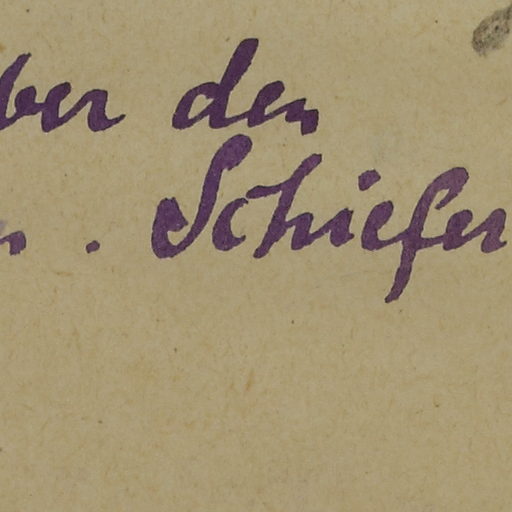 ber den
. Schiefer